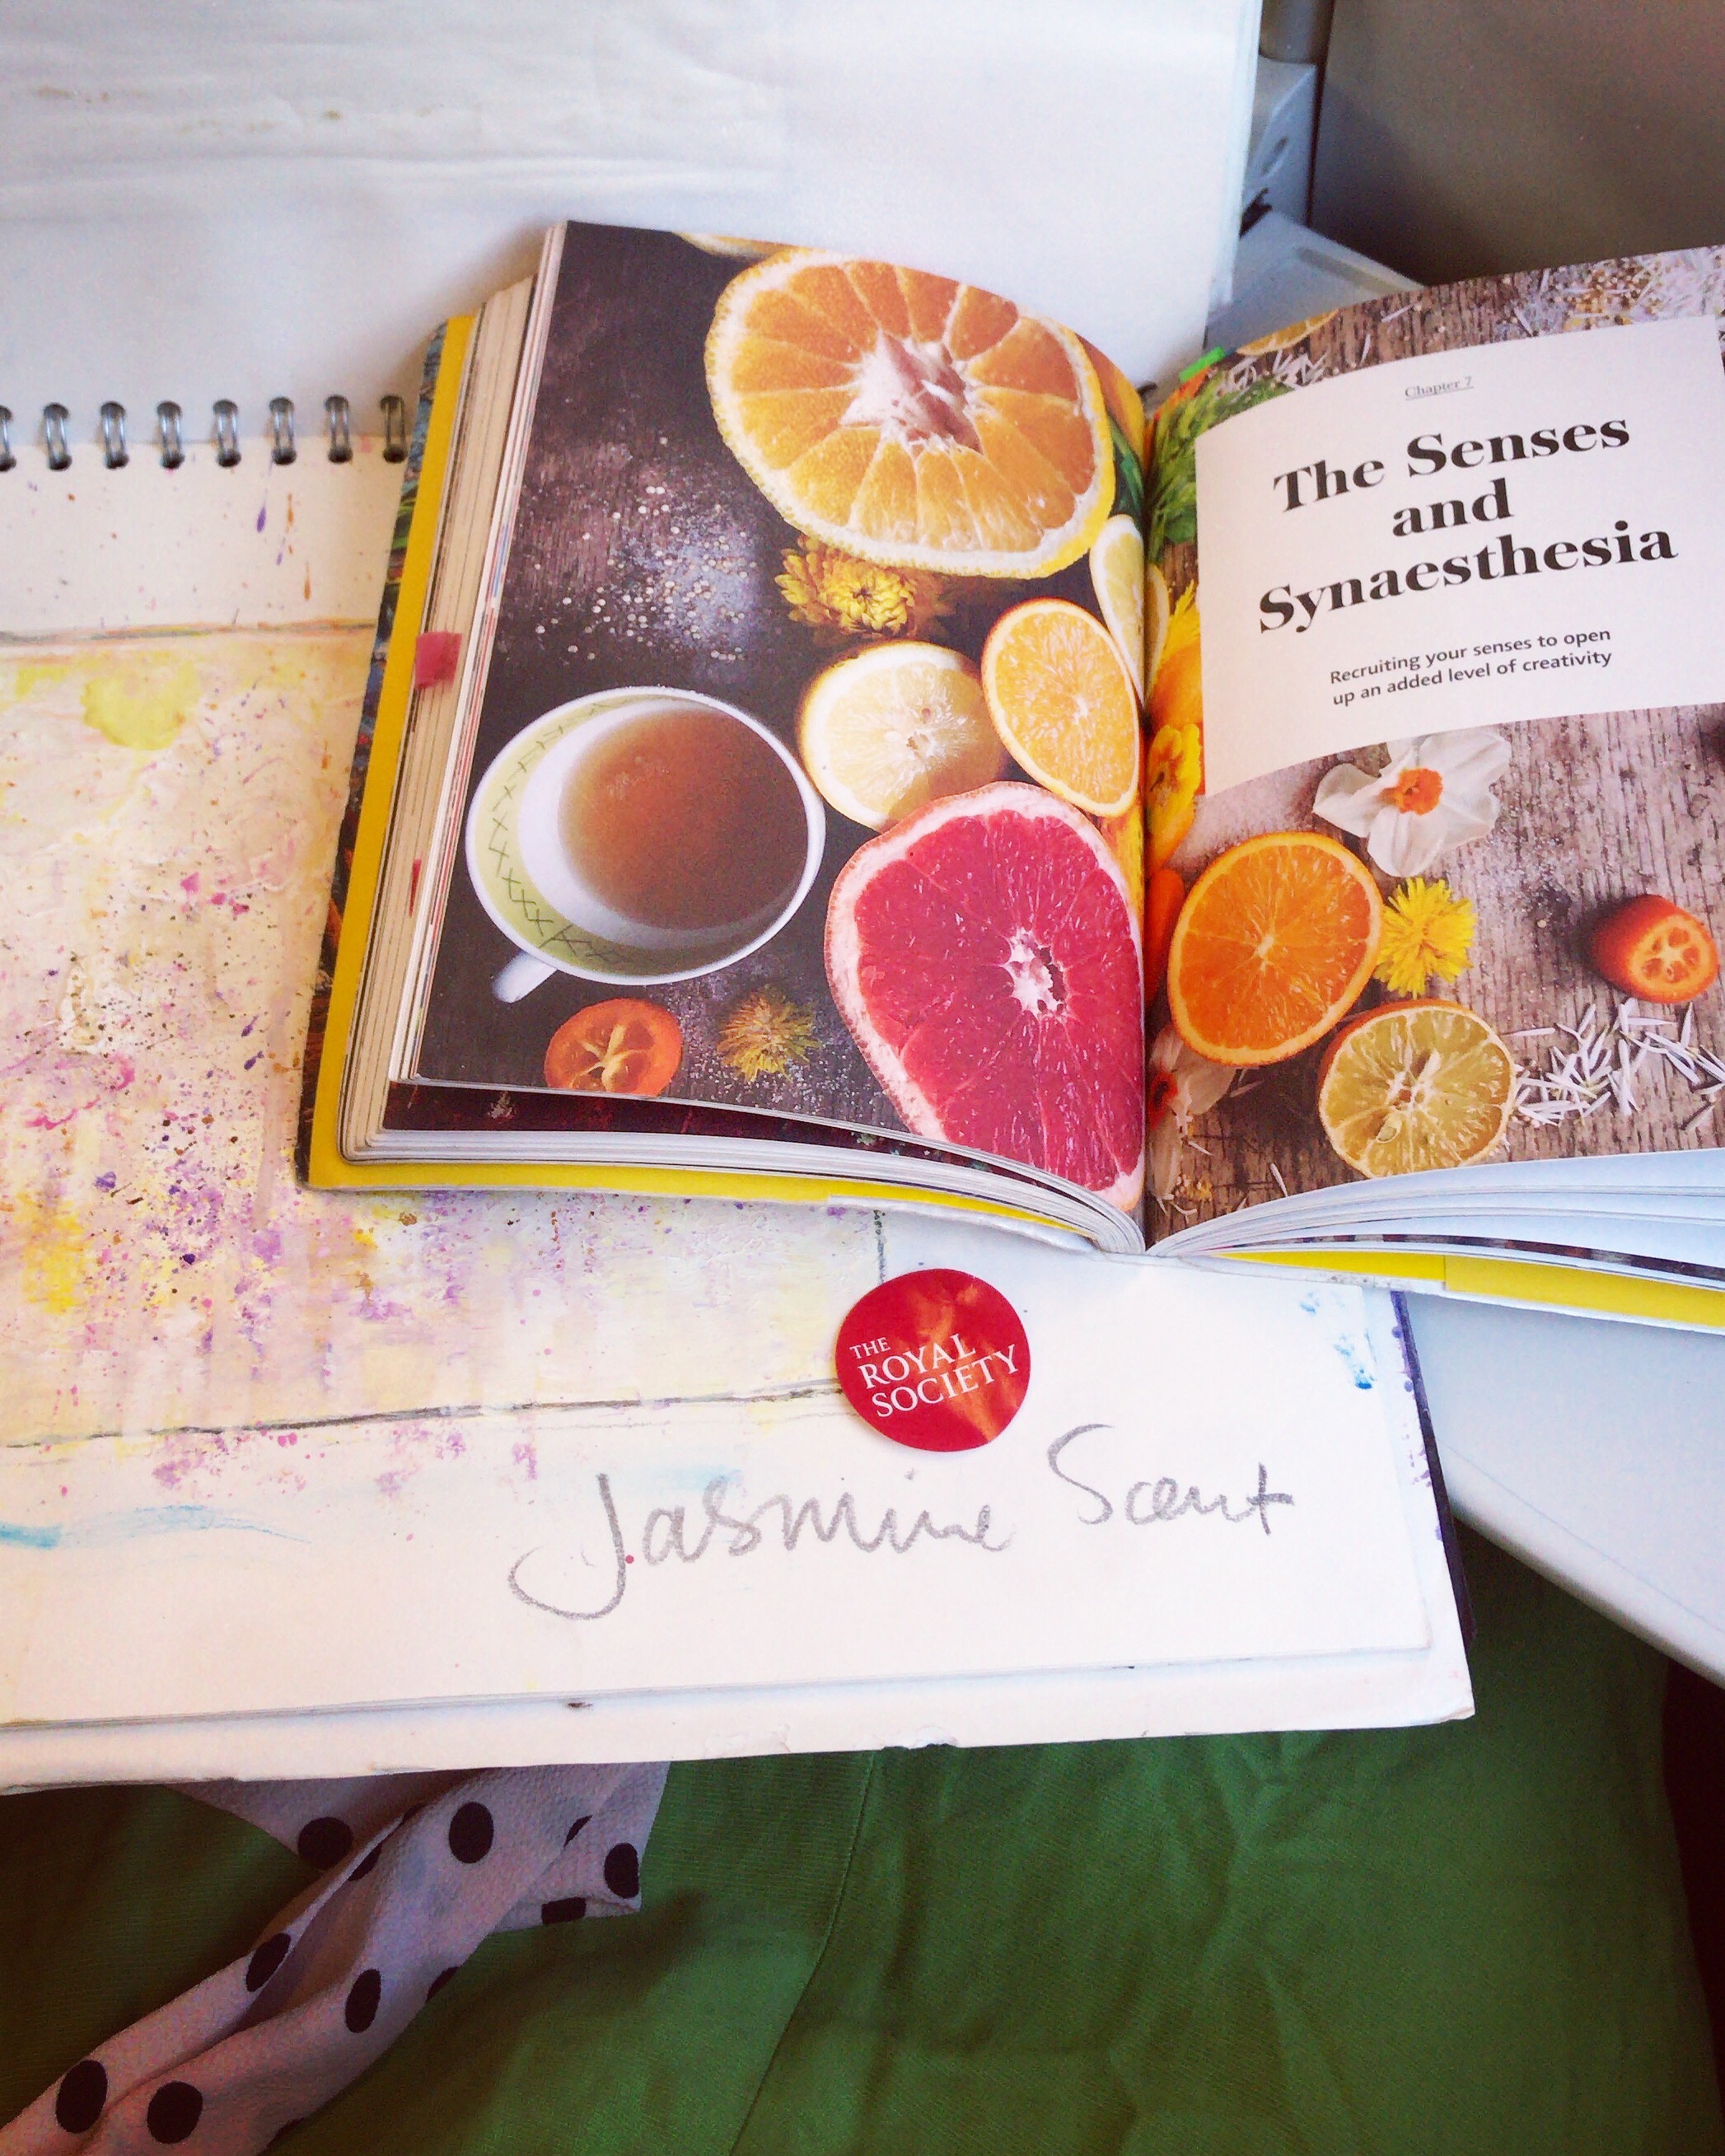 Chapter 7
The Senses
and
Synaesthesia
Recruiting your senses to open
up an added level of creativity
THE
ROYAL
SOCIETY
Jasmine Scent